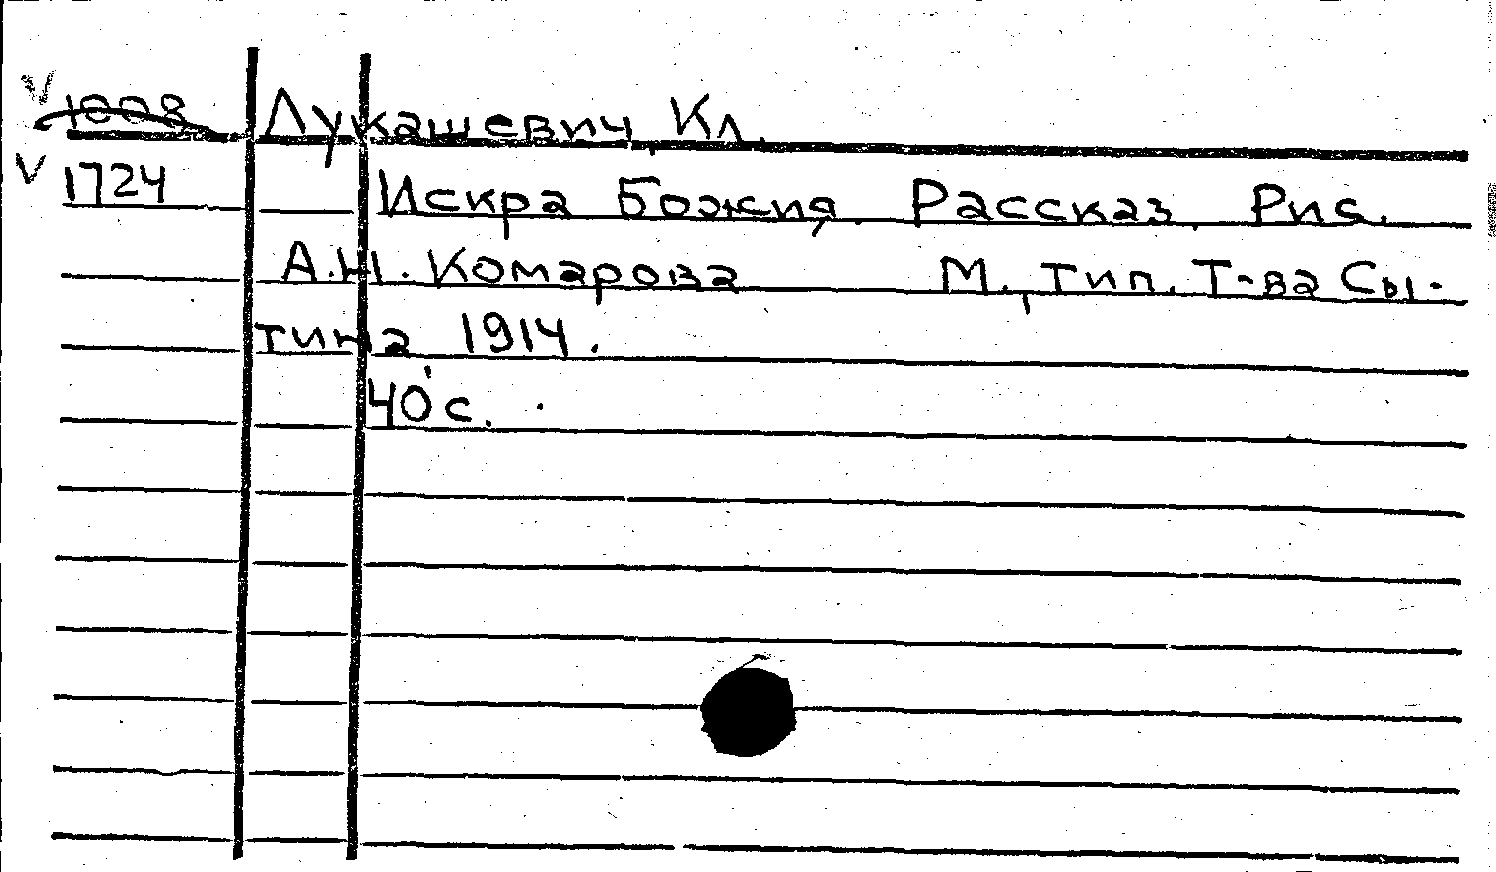 V 1008 Лукашевич, Кл.
V 1724 Искра Божия. Рассказ. Рис.
А.Н. Комарова М., тип. Т-ва Сы-
тина 1914.
40 с.